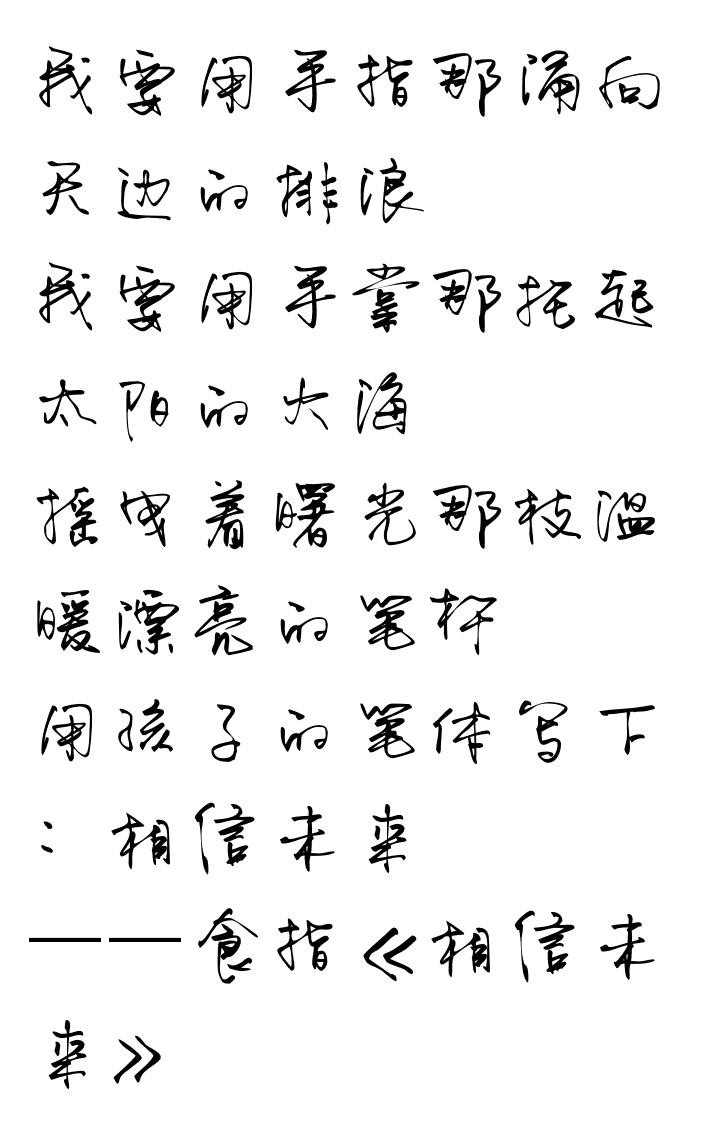 我要用手指那涌向
天边的排浪
我要用手掌那托起
太阳的大海
摇曳着曙光那枝温
暖漂亮的笔杆
用孩子的笔体写下
：相信未来
——食指《相信未
来》